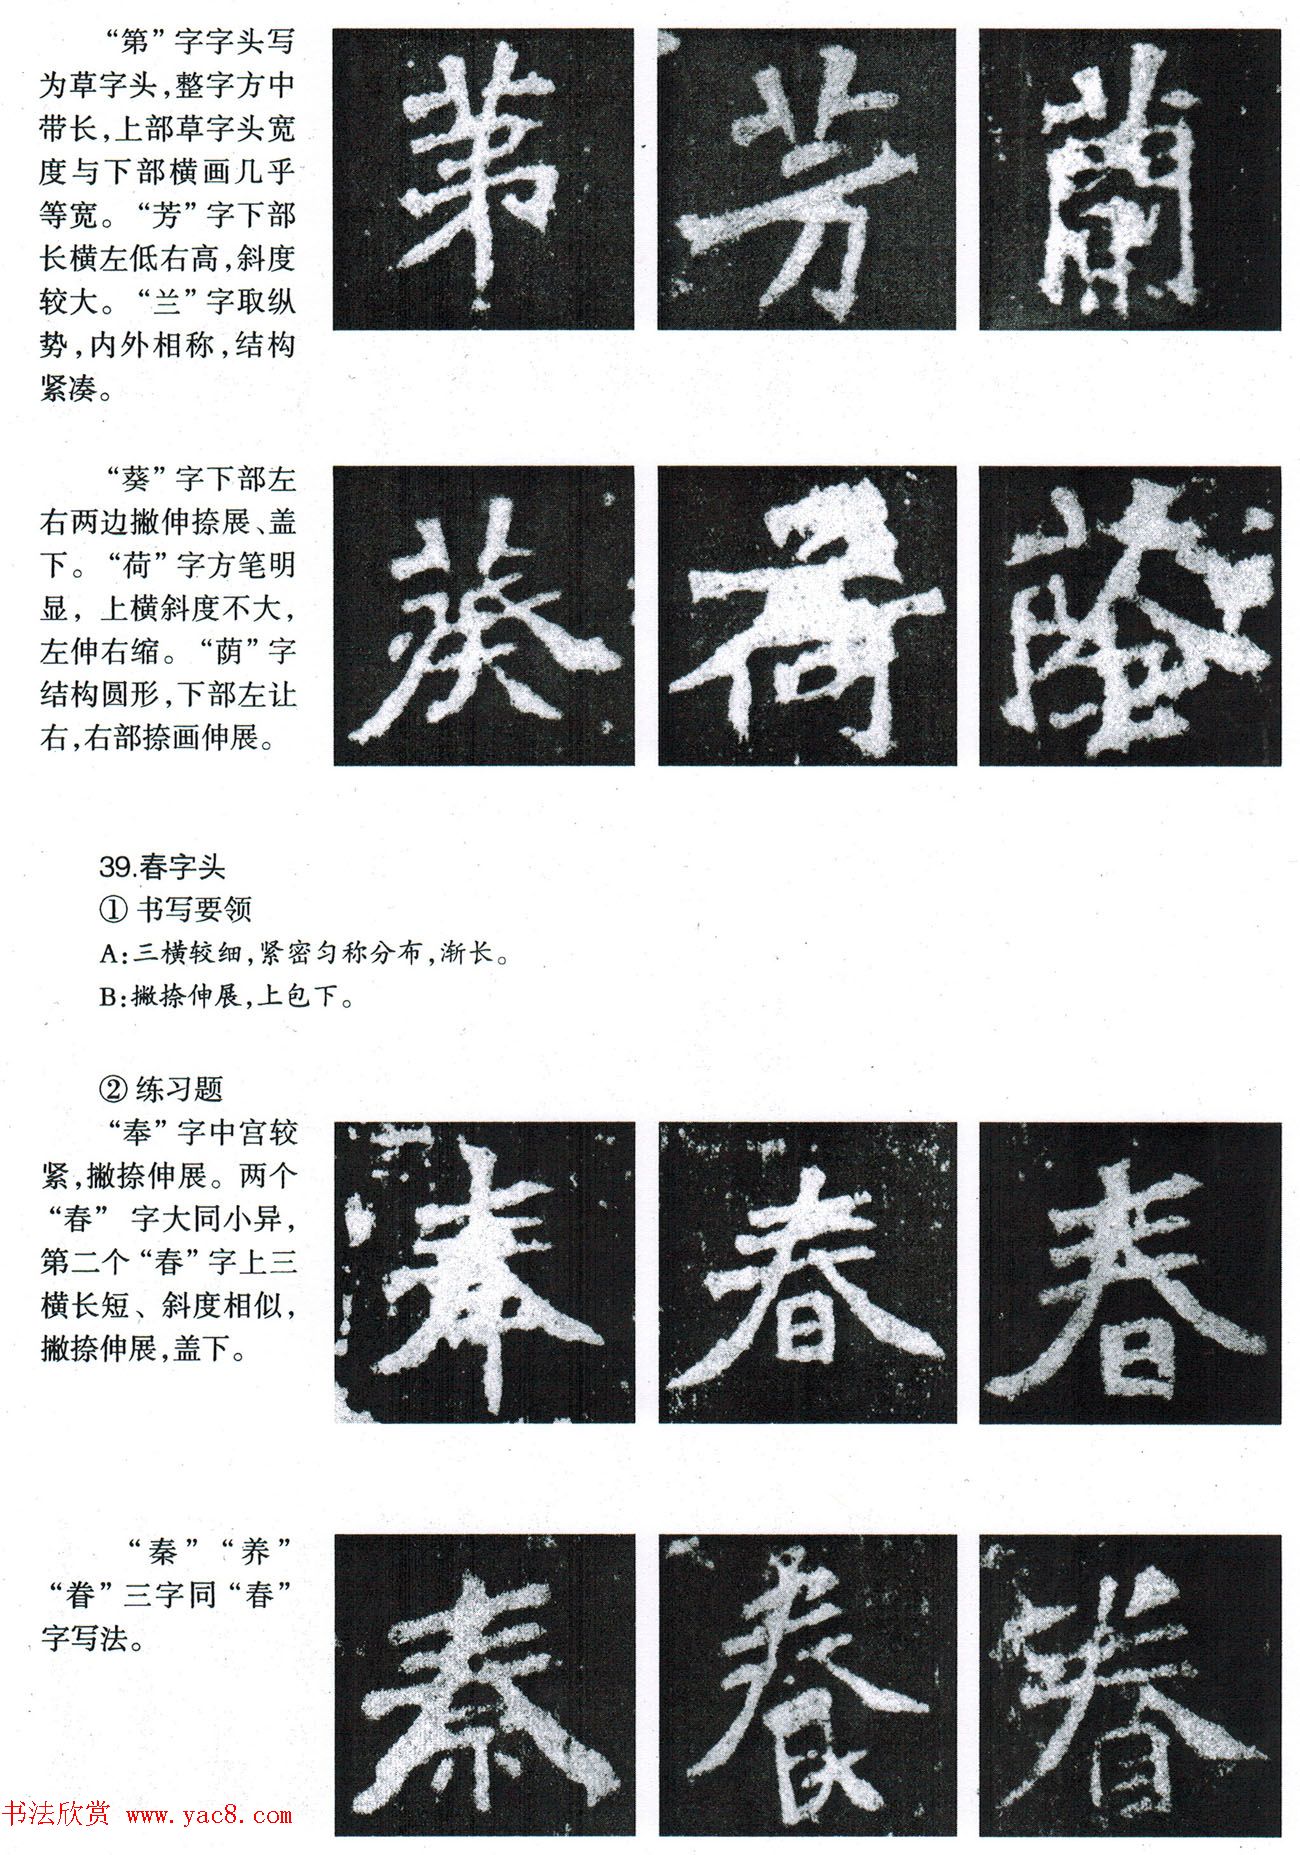 “第”字字头写
为草字头,整字方中
带长,上部草字头宽
度与下部横画几乎
等宽。“芳”字下部
长横左低右高,斜度
较大。“兰”字取纵
势,内外相称,结构
紧凑。
第 芳 蘭
“葵”字下部左
右两边撇伸捺展、盖
下。“荷”字方笔明
显,上横斜度不大,
左伸右缩。“荫”字
结构圆形,下部左让
右,右部捺画伸展。
葵 荷 蔭
39.春字头
① 书写要领
A:三横较细,紧密匀称分布,渐长。
B:撇捺伸展,上包下。
② 练习题
“奉”字中宫较
紧,撇捺伸展。两个
“春”字大同小异,
第二个“春”字上三
横长短、斜度相似,
撇捺伸展,盖下。
奉 春 春
“秦”“养”
“眷”三字同“春”
字写法。
秦 養 眷
书法欣赏 www.yac8.com